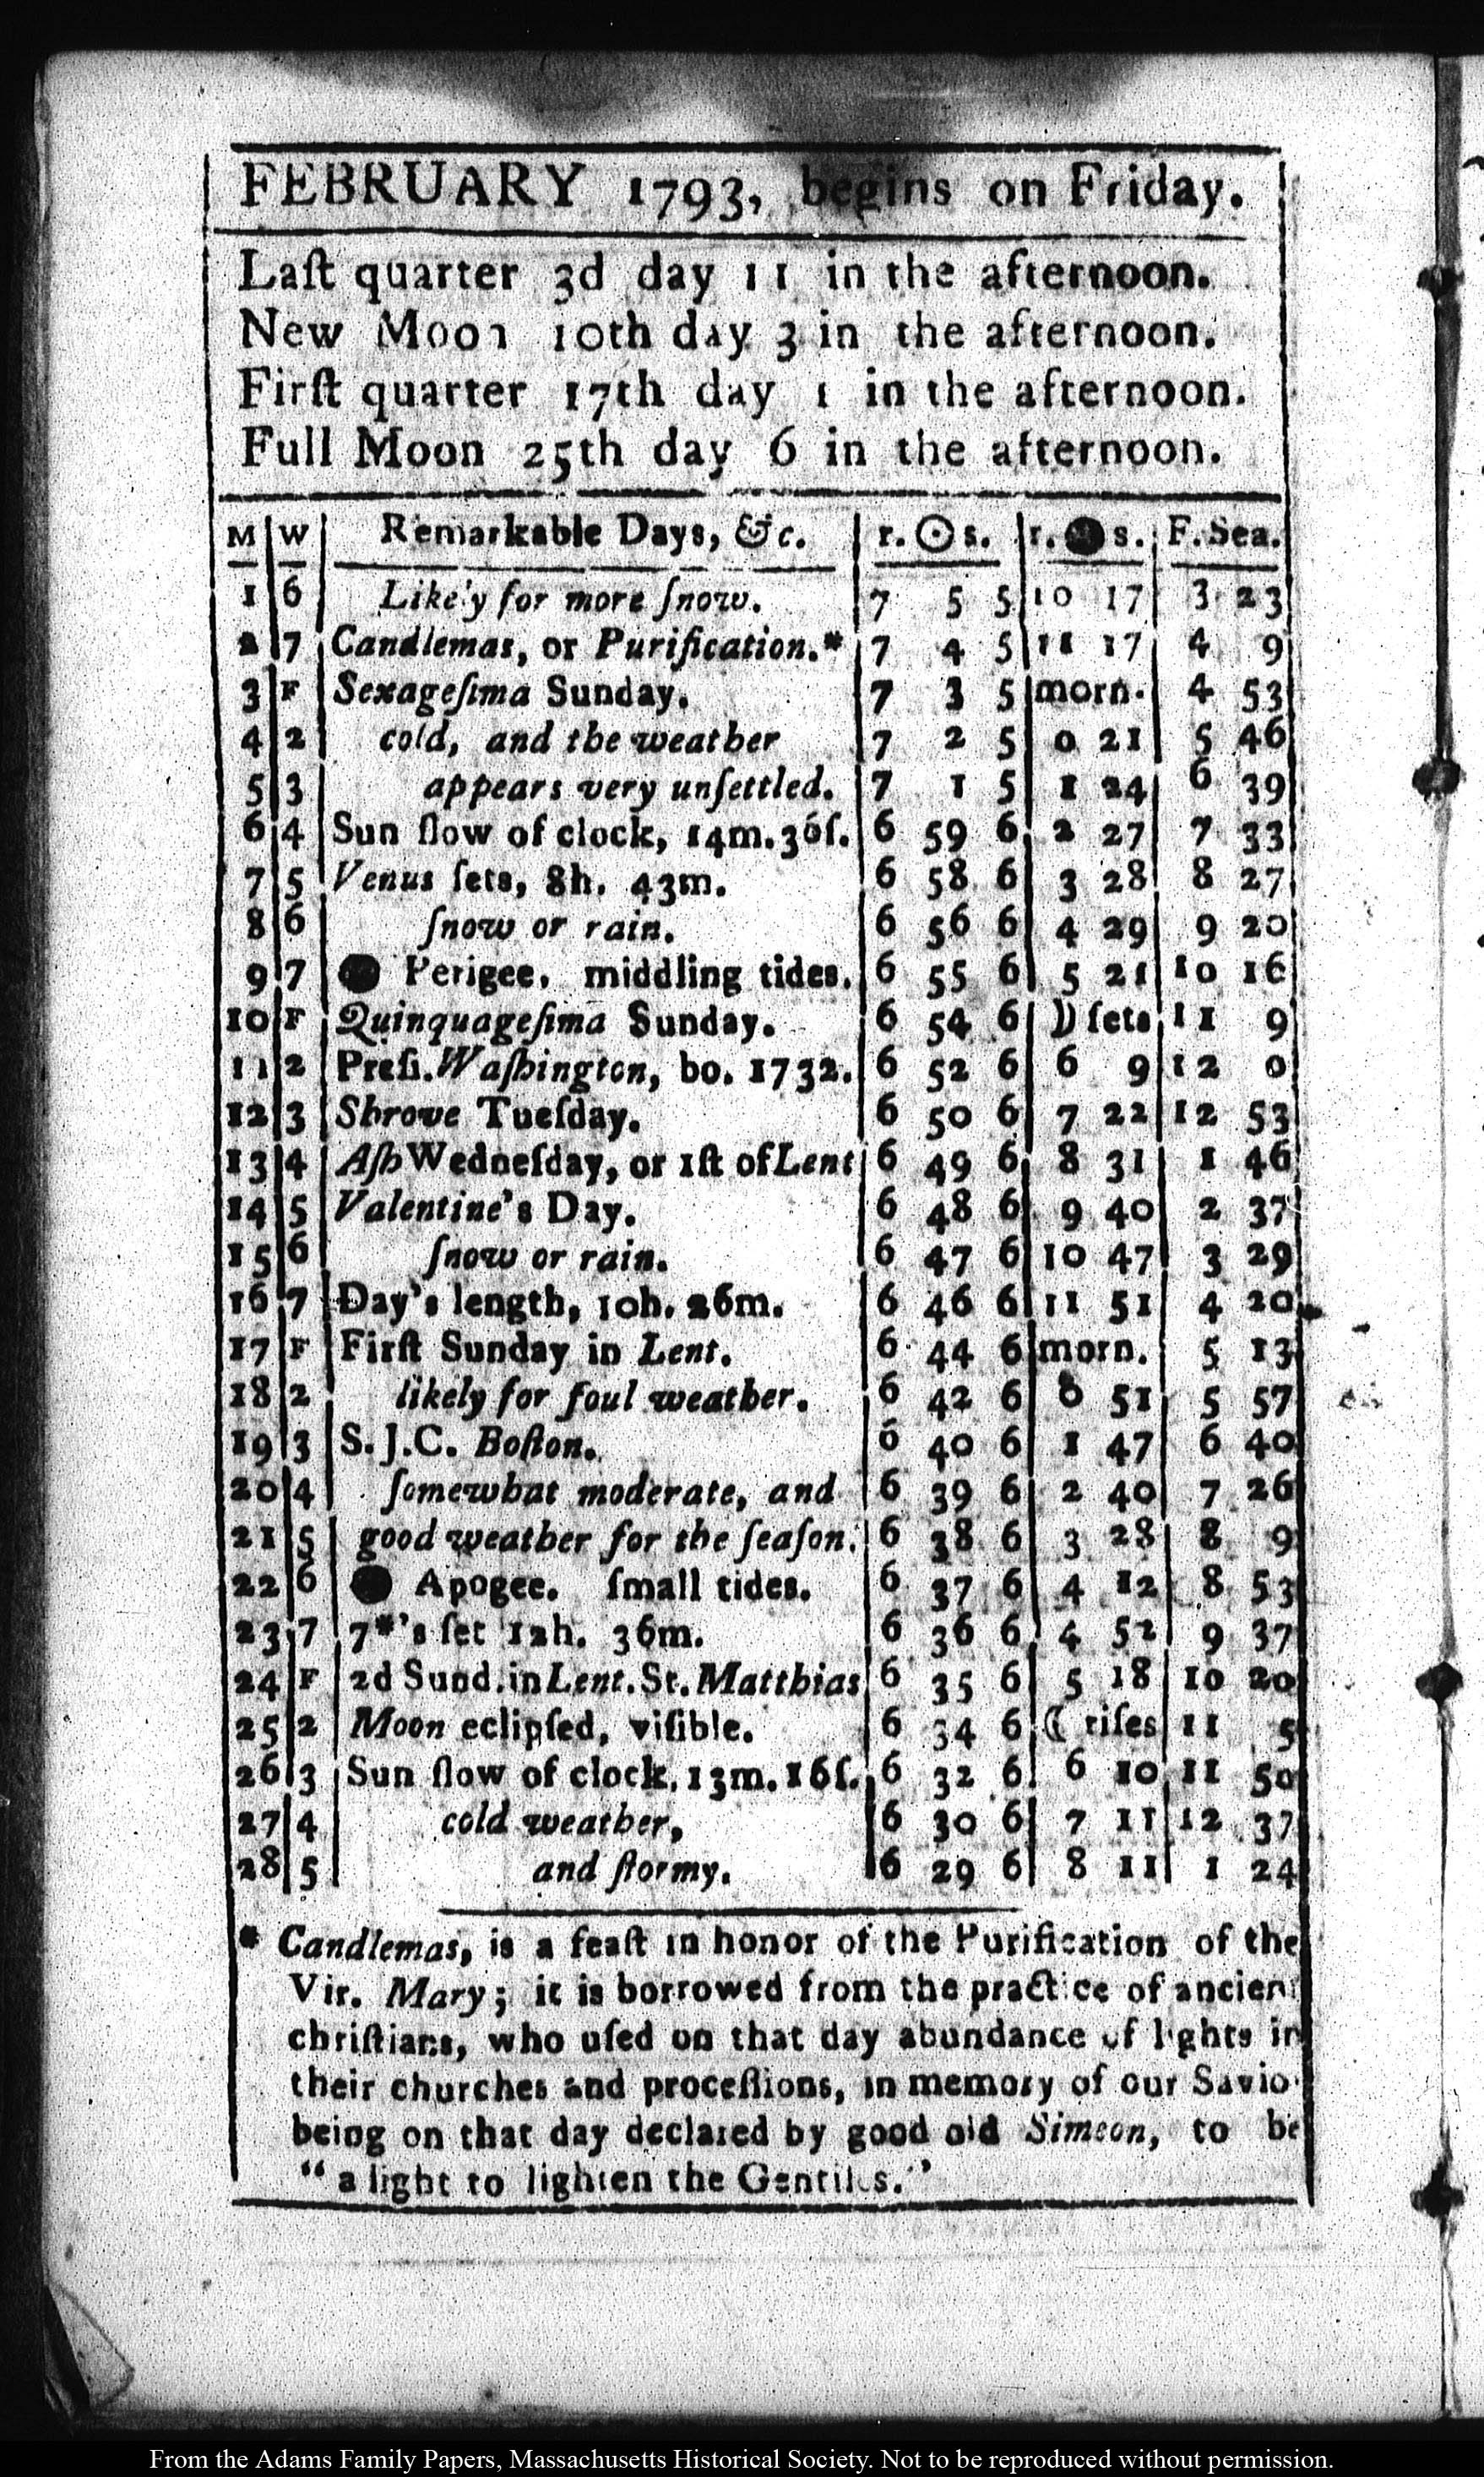 FEBRUARY 1793, begins on Friday.
Laſt quarter 3d day 11 in the afternoon.
New Moon 10th day 3 in the afternoon.
Firſt quarter 17th day 1 in the afternoon.
Full Moon 25th day 6 in the afternoon.
M W Remarkable Days, &c. r. ☉ s. r. ● s. F. Sea.
1 6 Likely for more ſnow. 7 5 5 10 17 3 23
2 7 Candlemas, or Purification.* 7 4 5 11 17 4 9
3 F Sexageſima Sunday. 7 3 5 morn. 4 53
4 2 cold, and the weather 7 2 5 0 21 5 46
5 3 appears very unſettled. 7 1 5 1 24 6 39
6 4 Sun ſlow of clock, 14m. 36ſ. 6 59 6 2 27 7 33
7 5 Venus ſets, 8h. 43m. 6 58 6 3 28 8 27
8 6 ſnow or rain. 6 56 6 4 29 9 20
9 7 ● Perigee, middling tides. 6 55 6 5 21 10 16
10 F Quinquageſima Sunday. 6 54 6 ☽ ſets 11 9
11 2 Preſi. Waſhington, bo. 1732. 6 52 6 6 9 12 0
12 3 Shrove Tueſday. 6 50 6 7 22 12 53
13 4 Aſh Wedneſday, or 1ſt of Lent 6 49 6 8 31 1 46
14 5 Valentine's Day. 6 48 6 9 40 2 37
15 6 ſnow or rain. 6 47 6 10 47 3 29
16 7 Day's length, 10h. 26m. 6 46 6 11 51 4 20
17 F Firſt Sunday in Lent. 6 44 6 morn. 5 13
18 2 likely for foul weather. 6 42 6 0 51 5 57
19 3 S. J. C. Boſton. 6 40 6 1 47 6 40
20 4 ſomewhat moderate, and 6 39 6 2 40 7 26
21 5 good weather for the ſeaſon. 6 38 6 3 28 8 9
22 6 ● Apogee. ſmall tides. 6 37 6 4 12 8 53
23 7 7*'s ſet 12h. 36m. 6 36 6 4 52 9 37
24 F 2d Sund. in Lent. St. Matthias 6 35 6 5 18 10 20
25 2 Moon eclipſed, viſible. 6 34 6 ☾ riſes 11 5
26 3 Sun ſlow of clock, 13m. 16ſ. 6 32 6 6 10 11 50
27 4 cold weather, 6 30 6 7 11 12 37
28 5 and ſtormy. 6 29 6 8 11 1 24
* Candlemas, is a feaſt in honor of the Purification of the
Vir. Mary; it is borrowed from the practice of ancient
chriſtians, who uſed on that day abundance of lights in
their churches and proceſſions, in memory of our Savio
being on that day declared by good old Simeon, to be
"a light to lighten the Gentiles."
From the Adams Family Papers, Massachusetts Historical Society. Not to be reproduced without permission.